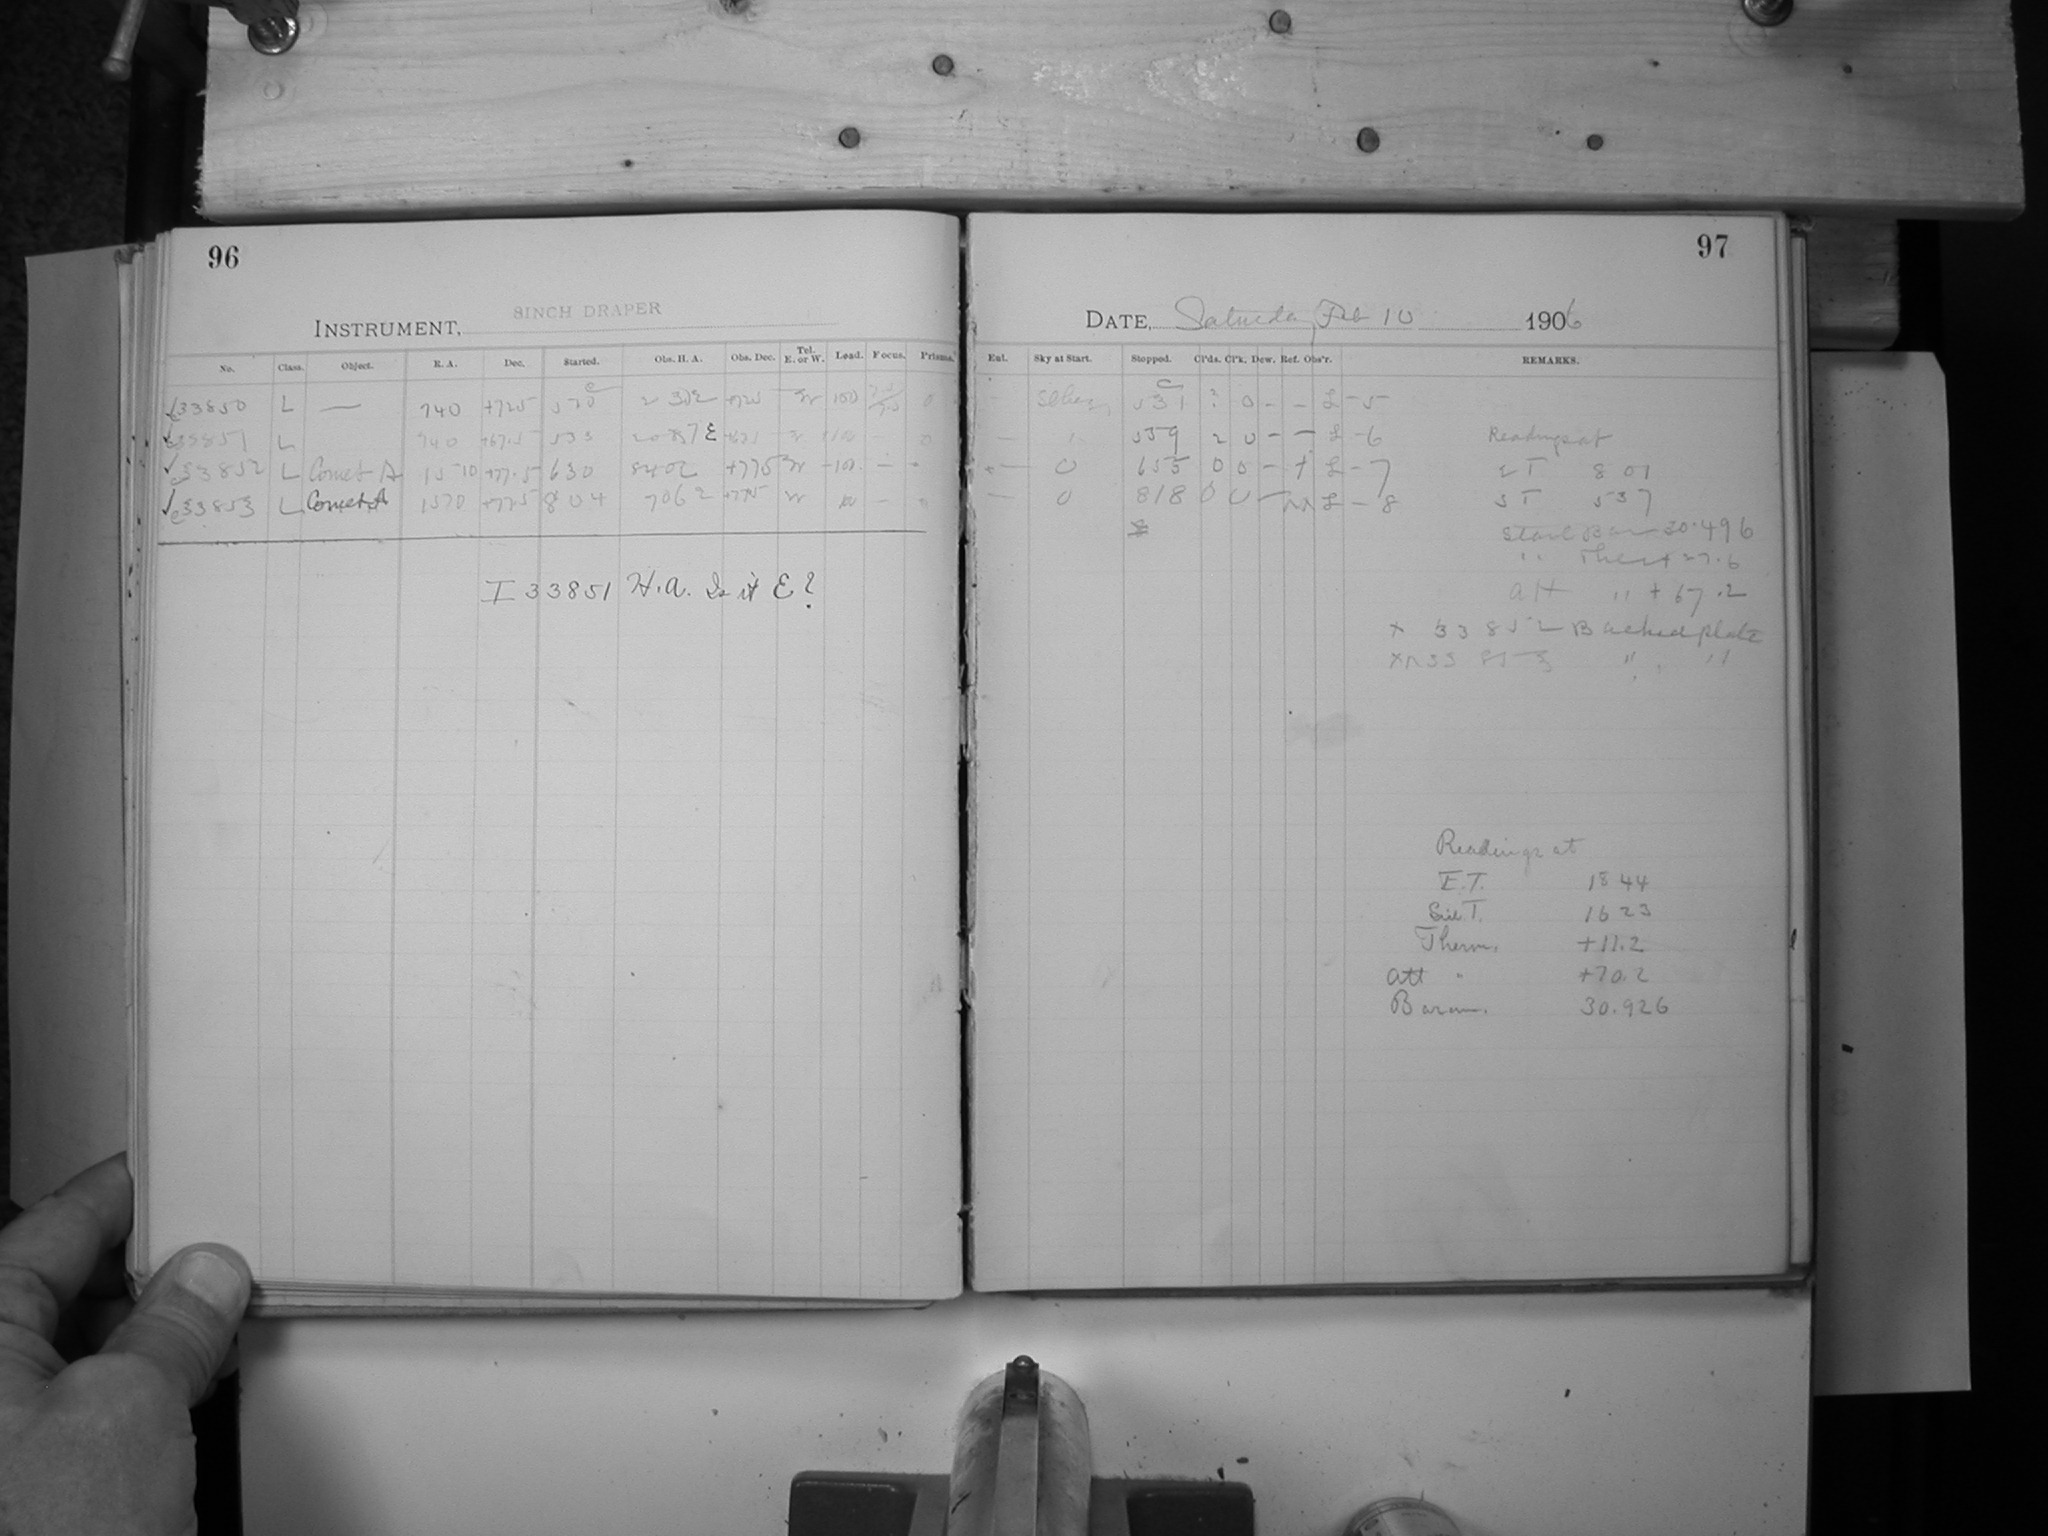 96
8INCH DRAPER
INSTRUMENT,
No. Class. Object. R. A. Dec. Started. Obs. H. A. Obs. Dec. Tel. E. or W. Lead. Focus. Prisms.
33850 L — 740 +725 100 0
33851 L 740 +67.5 533 E
33852 L Comet A 1510 +77.5 630 8402 +775 W 100 —
33853 L Comet A 1510 +775 804 7062 +775 W 100 —
I 33851 H.A. Is it E?
97
DATE, Saturday Feb 10 1906
Ent. Sky at Start. Stopped. Cl'ds. Cl'k. Dew. Ref. Obs'r. REMARKS.
531 ? 0 - - L -5
— 559 2 0 - - L -6 Readings at
— 0 655 0 0 - + L -7 ET 8 01
— 0 818 0 0 — L -8 ST 537
Start Bar 30.496
" Ther + 27.6
Att " + 67.2
x 33852 Backed plate
" "
Readings at
E.T. 18 44
Sid T. 16 23
Therm. +11.2
Att " +70.2
Barom. 30.926